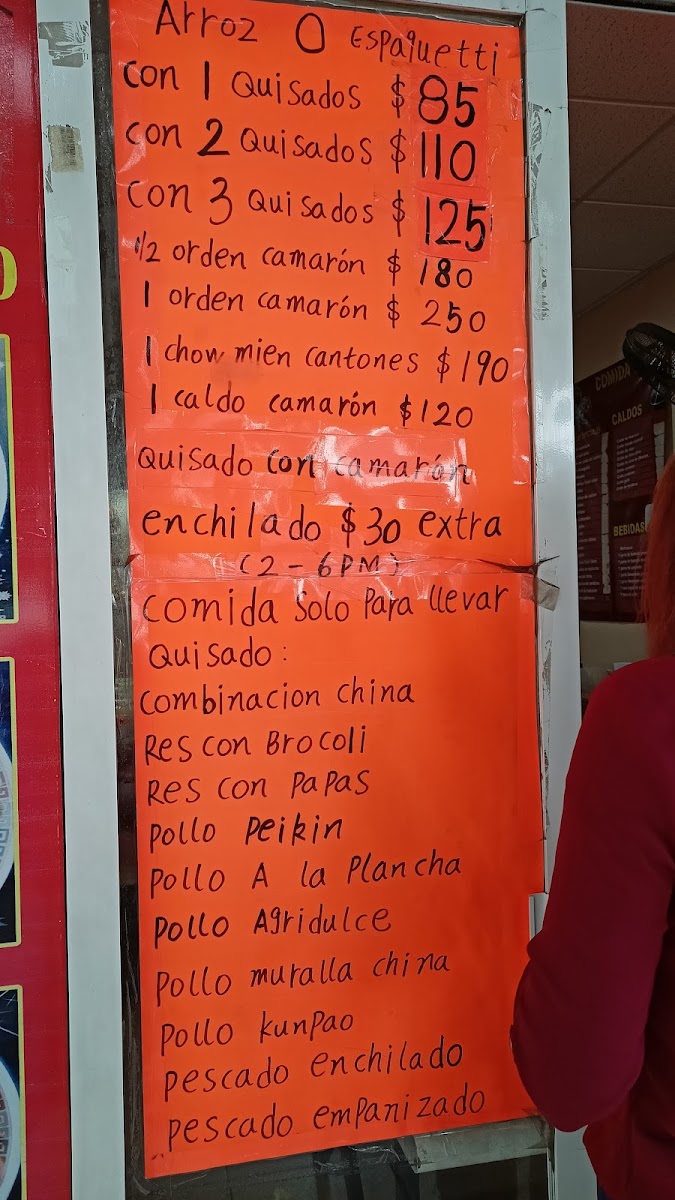 Arroz O Espaguetti
con 1 Quisados $85
con 2 Quisados $110
con 3 Quisados $125
1/2 orden camarón $180
1 orden camarón $250
1 chow mien cantones $190
1 caldo camarón $120
Quisado con camarón
enchilado $30 extra
(2-6PM)
comida Solo Para llevar
Quisado:
combinacion china
Res con Brocoli
Res con Papas
pollo peikin
pollo A la Plancha
pollo Agridulce
pollo muralla china
pollo kunpao
pescado enchilado
pescado empanizado
COMIDA
CALDOS
BEBIDAS